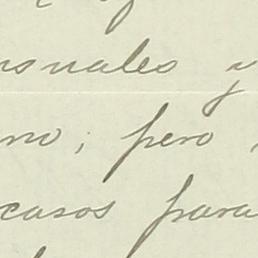 nsuales y
no, pero
casos para